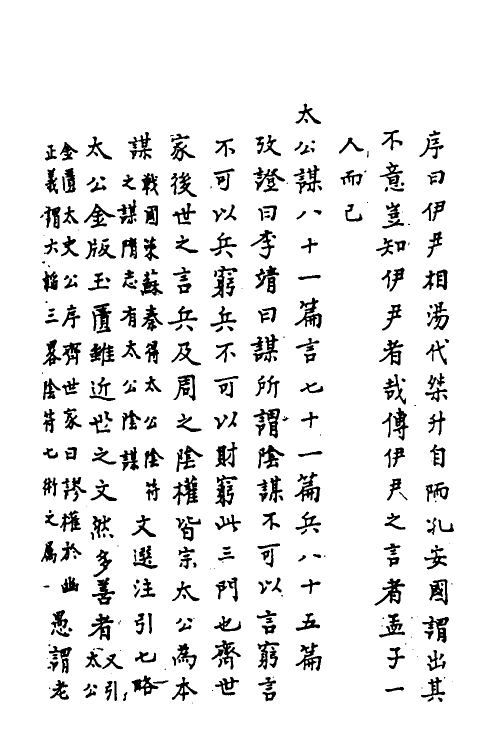 序曰伊尹相湯代桀升自陑孔安國謂出其
不意豈知伊尹者哉傳伊尹之言者孟子一
人而已
太公謀八十一篇言七十一篇兵八十五篇
攷證曰李靖曰謀所謂陰謀不可以言窮言
不可以兵窮兵不可以財窮此三門也齊世
家後世之言兵及周之陰權皆宗太公為本
謀戰國策蘇秦得太公陰符之謀隋志有太公陰謀文選注引七略
太公金版玉匱雖近世之文然多善者又引太公
金匱太史公序齊世家曰謬權於幽正義謂六韜三畧陰符七術之属愚謂老